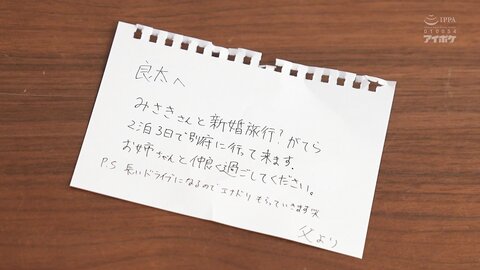 IPPA
010054
アイポケ
良太へ
みさきさんと新婚旅行?がてら
2泊3日で別府に行って来ます。
お姉ちゃんと仲良く過ごしてください。
P.S 長いドライブになるのでエナドリもらっていきます笑
父より